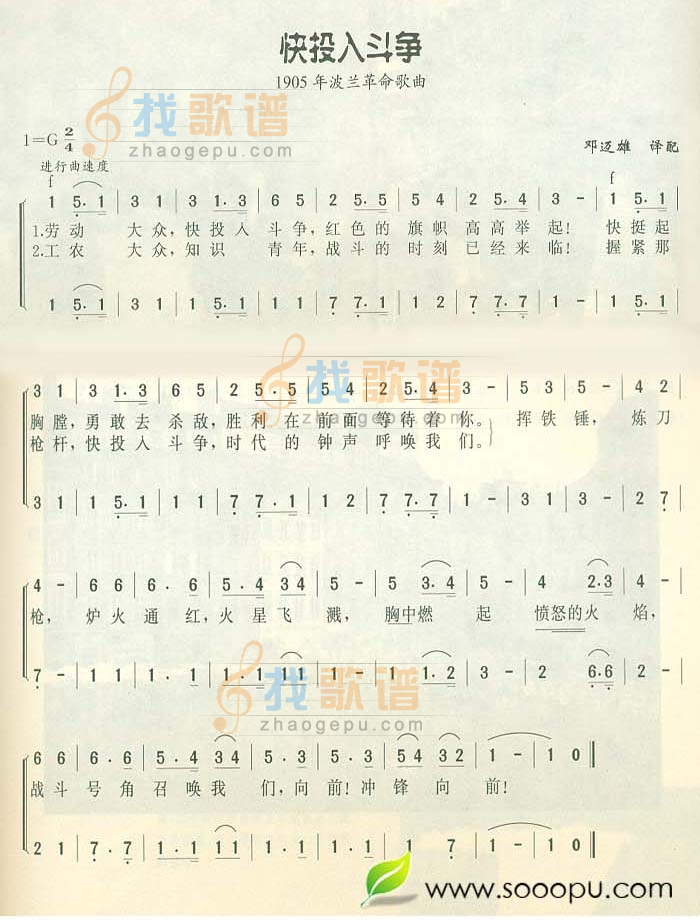 快投入斗争
1905 年波兰革命歌曲
1=G 2/4
邓迈雄 译配
进行曲速度
f f
1 5·1 | 3 1 | 3 1·3 | 6 5 | 2 5·5 | 5 4 | 2 5·4 | 3 - | 1 5·1
1.劳动 大众,快投入 斗争,红色的 旗帜 高高举 起! 快挺起
2.工农 大众,知识 青年,战斗的 时刻 已经来 临! 握紧那
1 5·1 | 1 1 | 1 5·1 | 1 1 | 1 7 7·1 | 1 2 | 7 7·7 | 1 - | 1 5·1
找歌谱
zhaogepu.com
3 1 | 3 1·3 | 6 5 | 2 5·5 | 5 4 | 2 5·4 | 3 - | 5 3 | 5 - | 4 2
胸膛,勇敢去 杀敌,胜利 在 前面 等待着 你。 挥铁 锤, 炼刀
枪杆,快投入 斗争,时代 的 钟声 呼唤我 们。
3 1 | 1 5·1 | 1 1 | 7 7·1 | 1 2 | 7 7·7 | 1 - | 3 1 | 3 - | 2 7
找歌谱
zhaogepu.com
4 - | 6 6 | 6·6 | 5·4 3 4 | 5 - | 5 3·4 | 5 - | 4 2·3 | 4
枪, 炉火 通红,火星飞 溅, 胸中燃 起 愤怒的火 焰,
7 - | 1 1 | 1·1 | 1·1 1 1 | 1 - | 1 1·2 | 3 1 | 2 6·6 | 7
找歌谱
zhaogepu.com
6 6 | 6·6 | 5·4 3 4 | 5·3 | 5·3 | 5 4 3 2 | 1 - | 1 0
战斗 号角 召唤我 们,向前!冲锋 向 前!
2 1 | 1·1 | 1·1 1 1 | 1·1 | 1·1 | 1 7 | 1 - | 1 0
www.sooopu.com